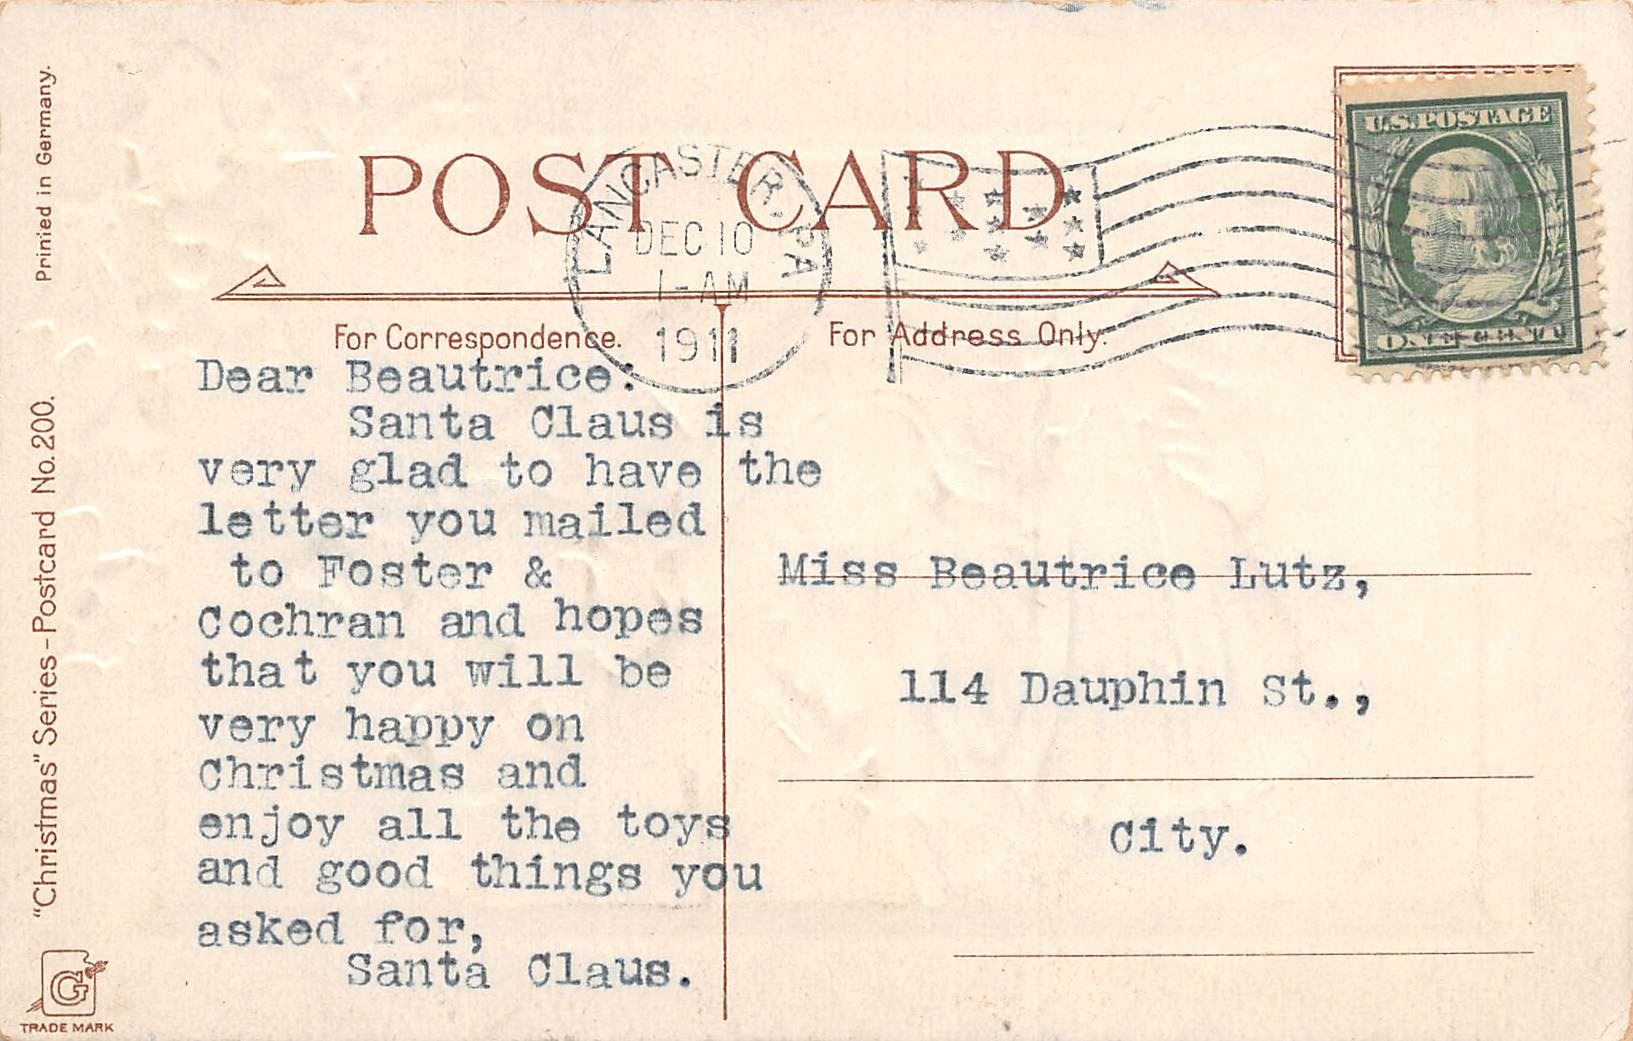 Printed in Germany.
"Christmas" Series-Postcard No. 200.
G
TRADE MARK
POST CARD
LANCASTER, PA
DEC 10
1-AM
1911
U.S. POSTAGE
ONE CENT
For Correspondence.
For Address Only.
Dear Beautrice:
Santa Claus is
very glad to have the
letter you mailed
to Foster &
Cochran and hopes
that you will be
very happy on
Christmas and
enjoy all the toys
and good things you
asked for,
Santa Claus.
Miss Beautrice Lutz,
114 Dauphin St.,
City.